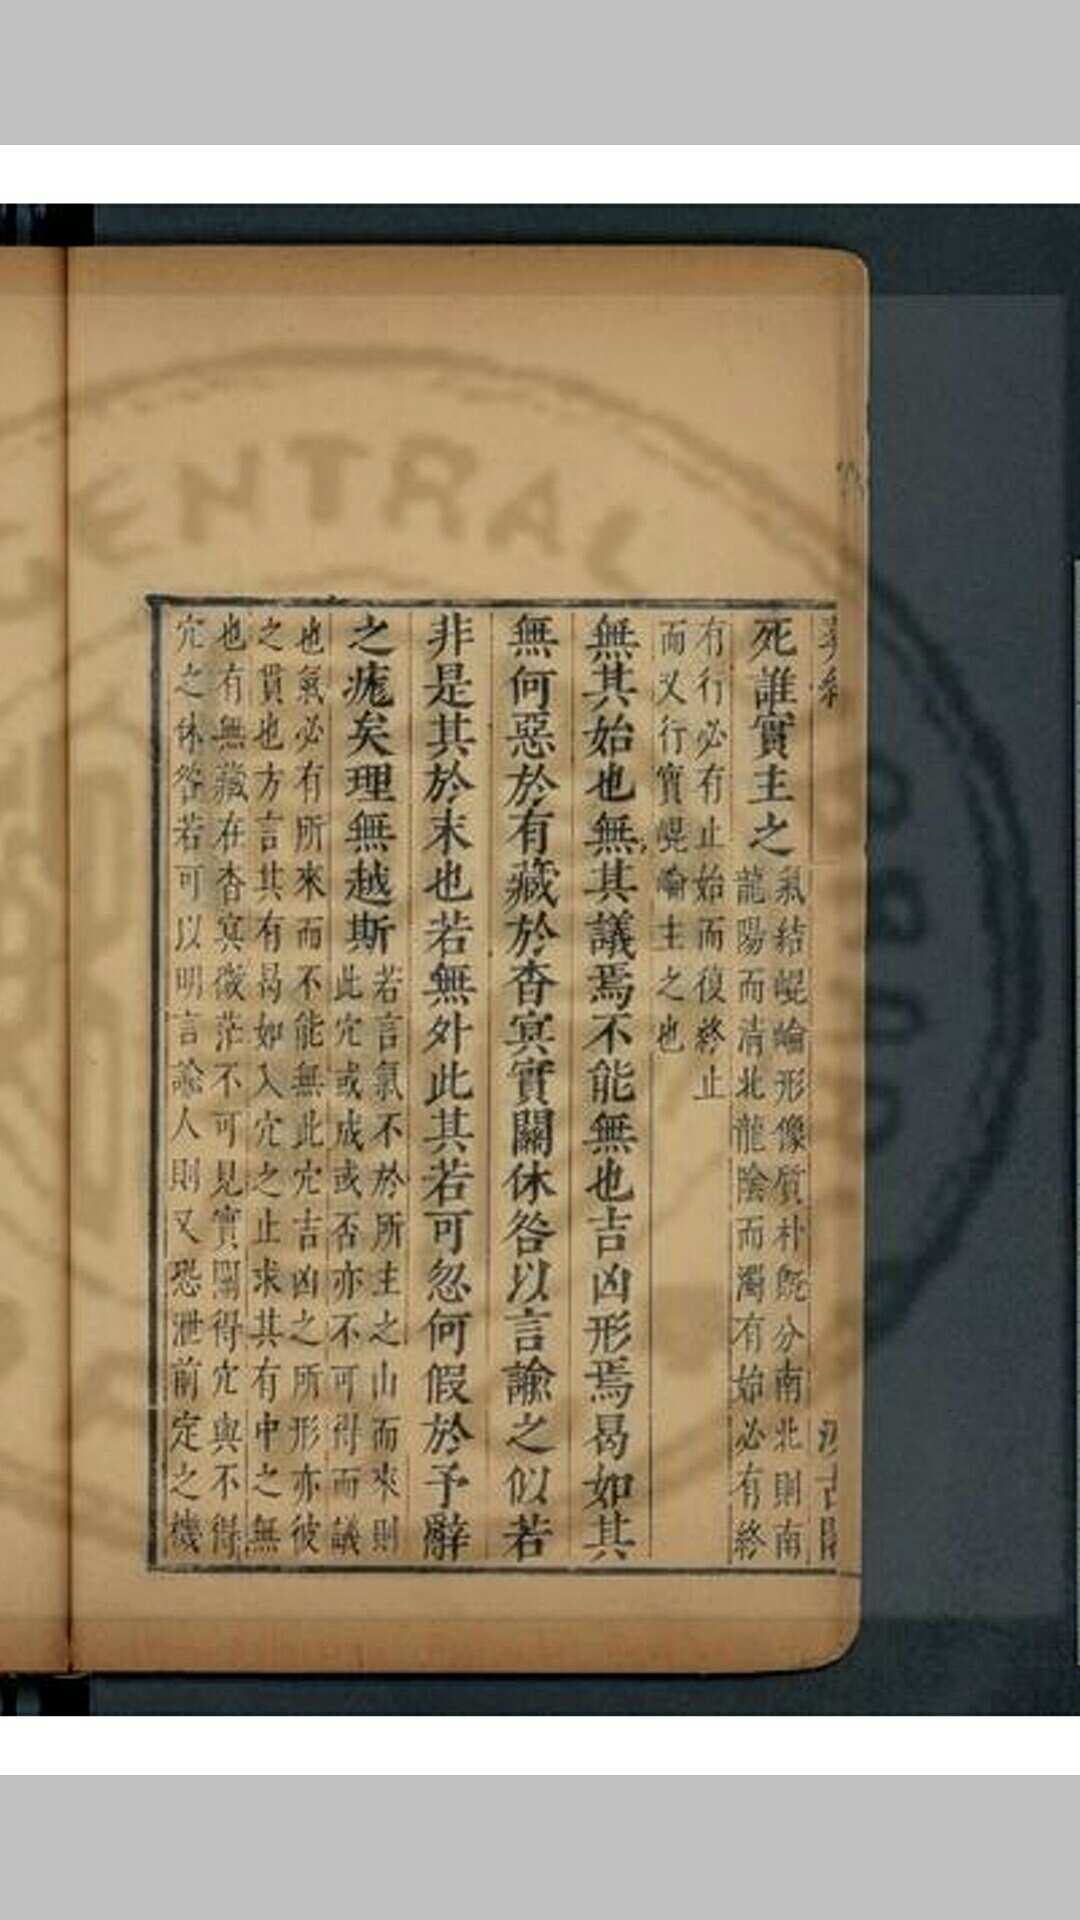 死誰實主之
氣結崐崙形像質朴旣分南北則南
龍陽而清北龍陰而濁有始必有終
有行必有止始而復終止
而又行實崐崙主之也
無其始也無其議焉不能無也吉凶形焉曷如其
無何惡於有藏於杳冥實關休咎以言諭之似若
非是其於末也若無外此其若可忽何假於予辭
之疣矣理無越斯
若言氣不於所主之山而來則
此穴或成或否亦不可得而議
也氣必有所來而不能無此穴吉凶之所形亦彼
之貫也方言其有曷如入穴之止求其有中之無
也有無藏在杳冥微茫不可見實關得穴與不得
穴之休咎若可以明言諭人則又恐泄前定之機
CENTRAL